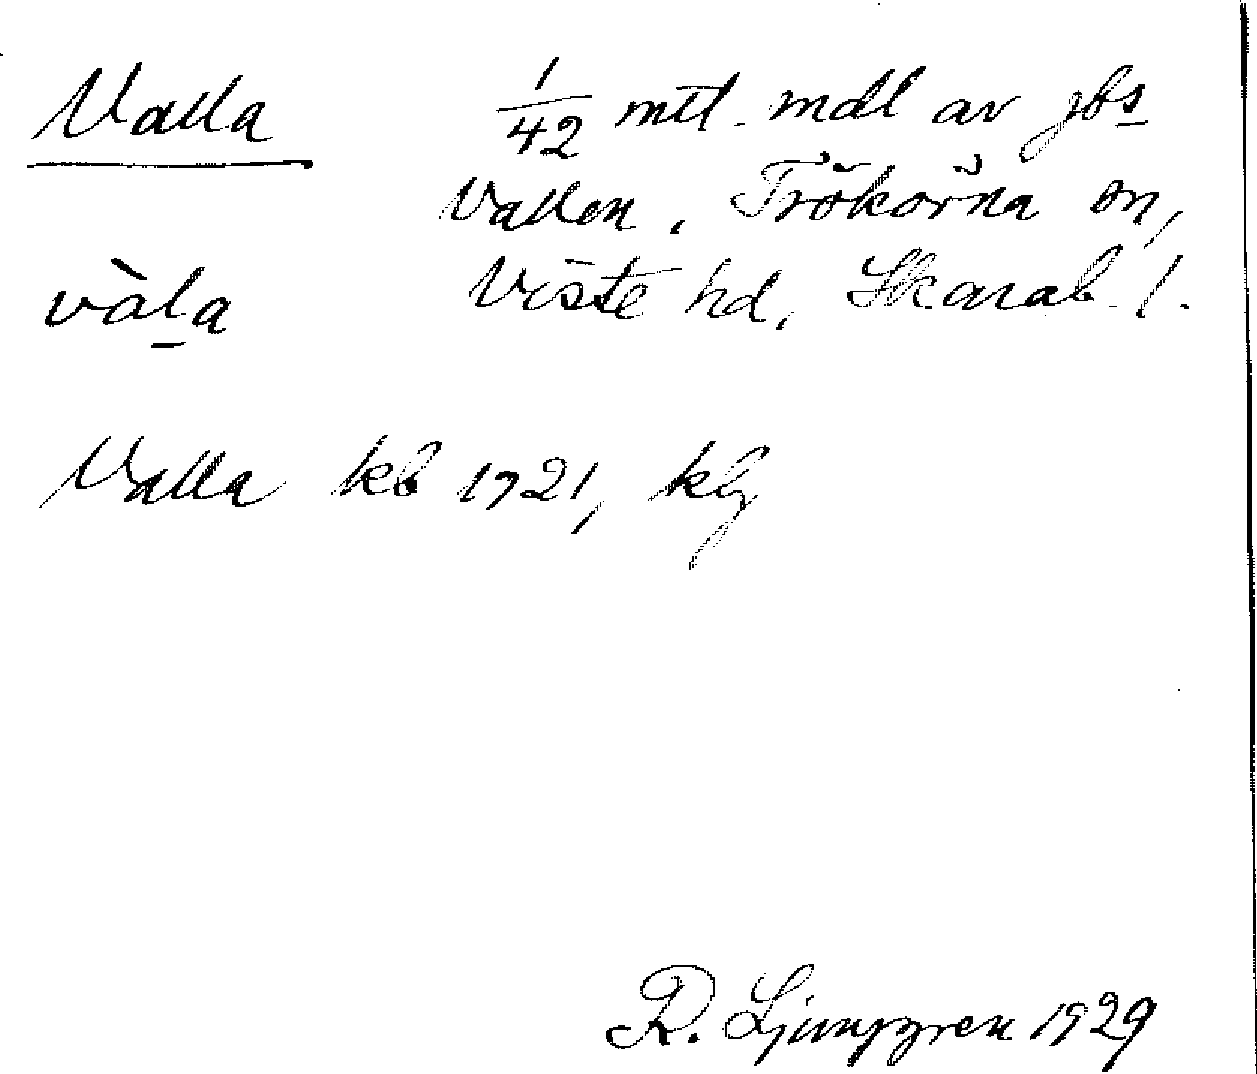 Valla
1/42 mtl. mdl av jbs
Vallen, Trökörna sn,
vàla
Viste hd, Skarab. l.
Valla kb 1721, klg
R. Ljunggren 1929